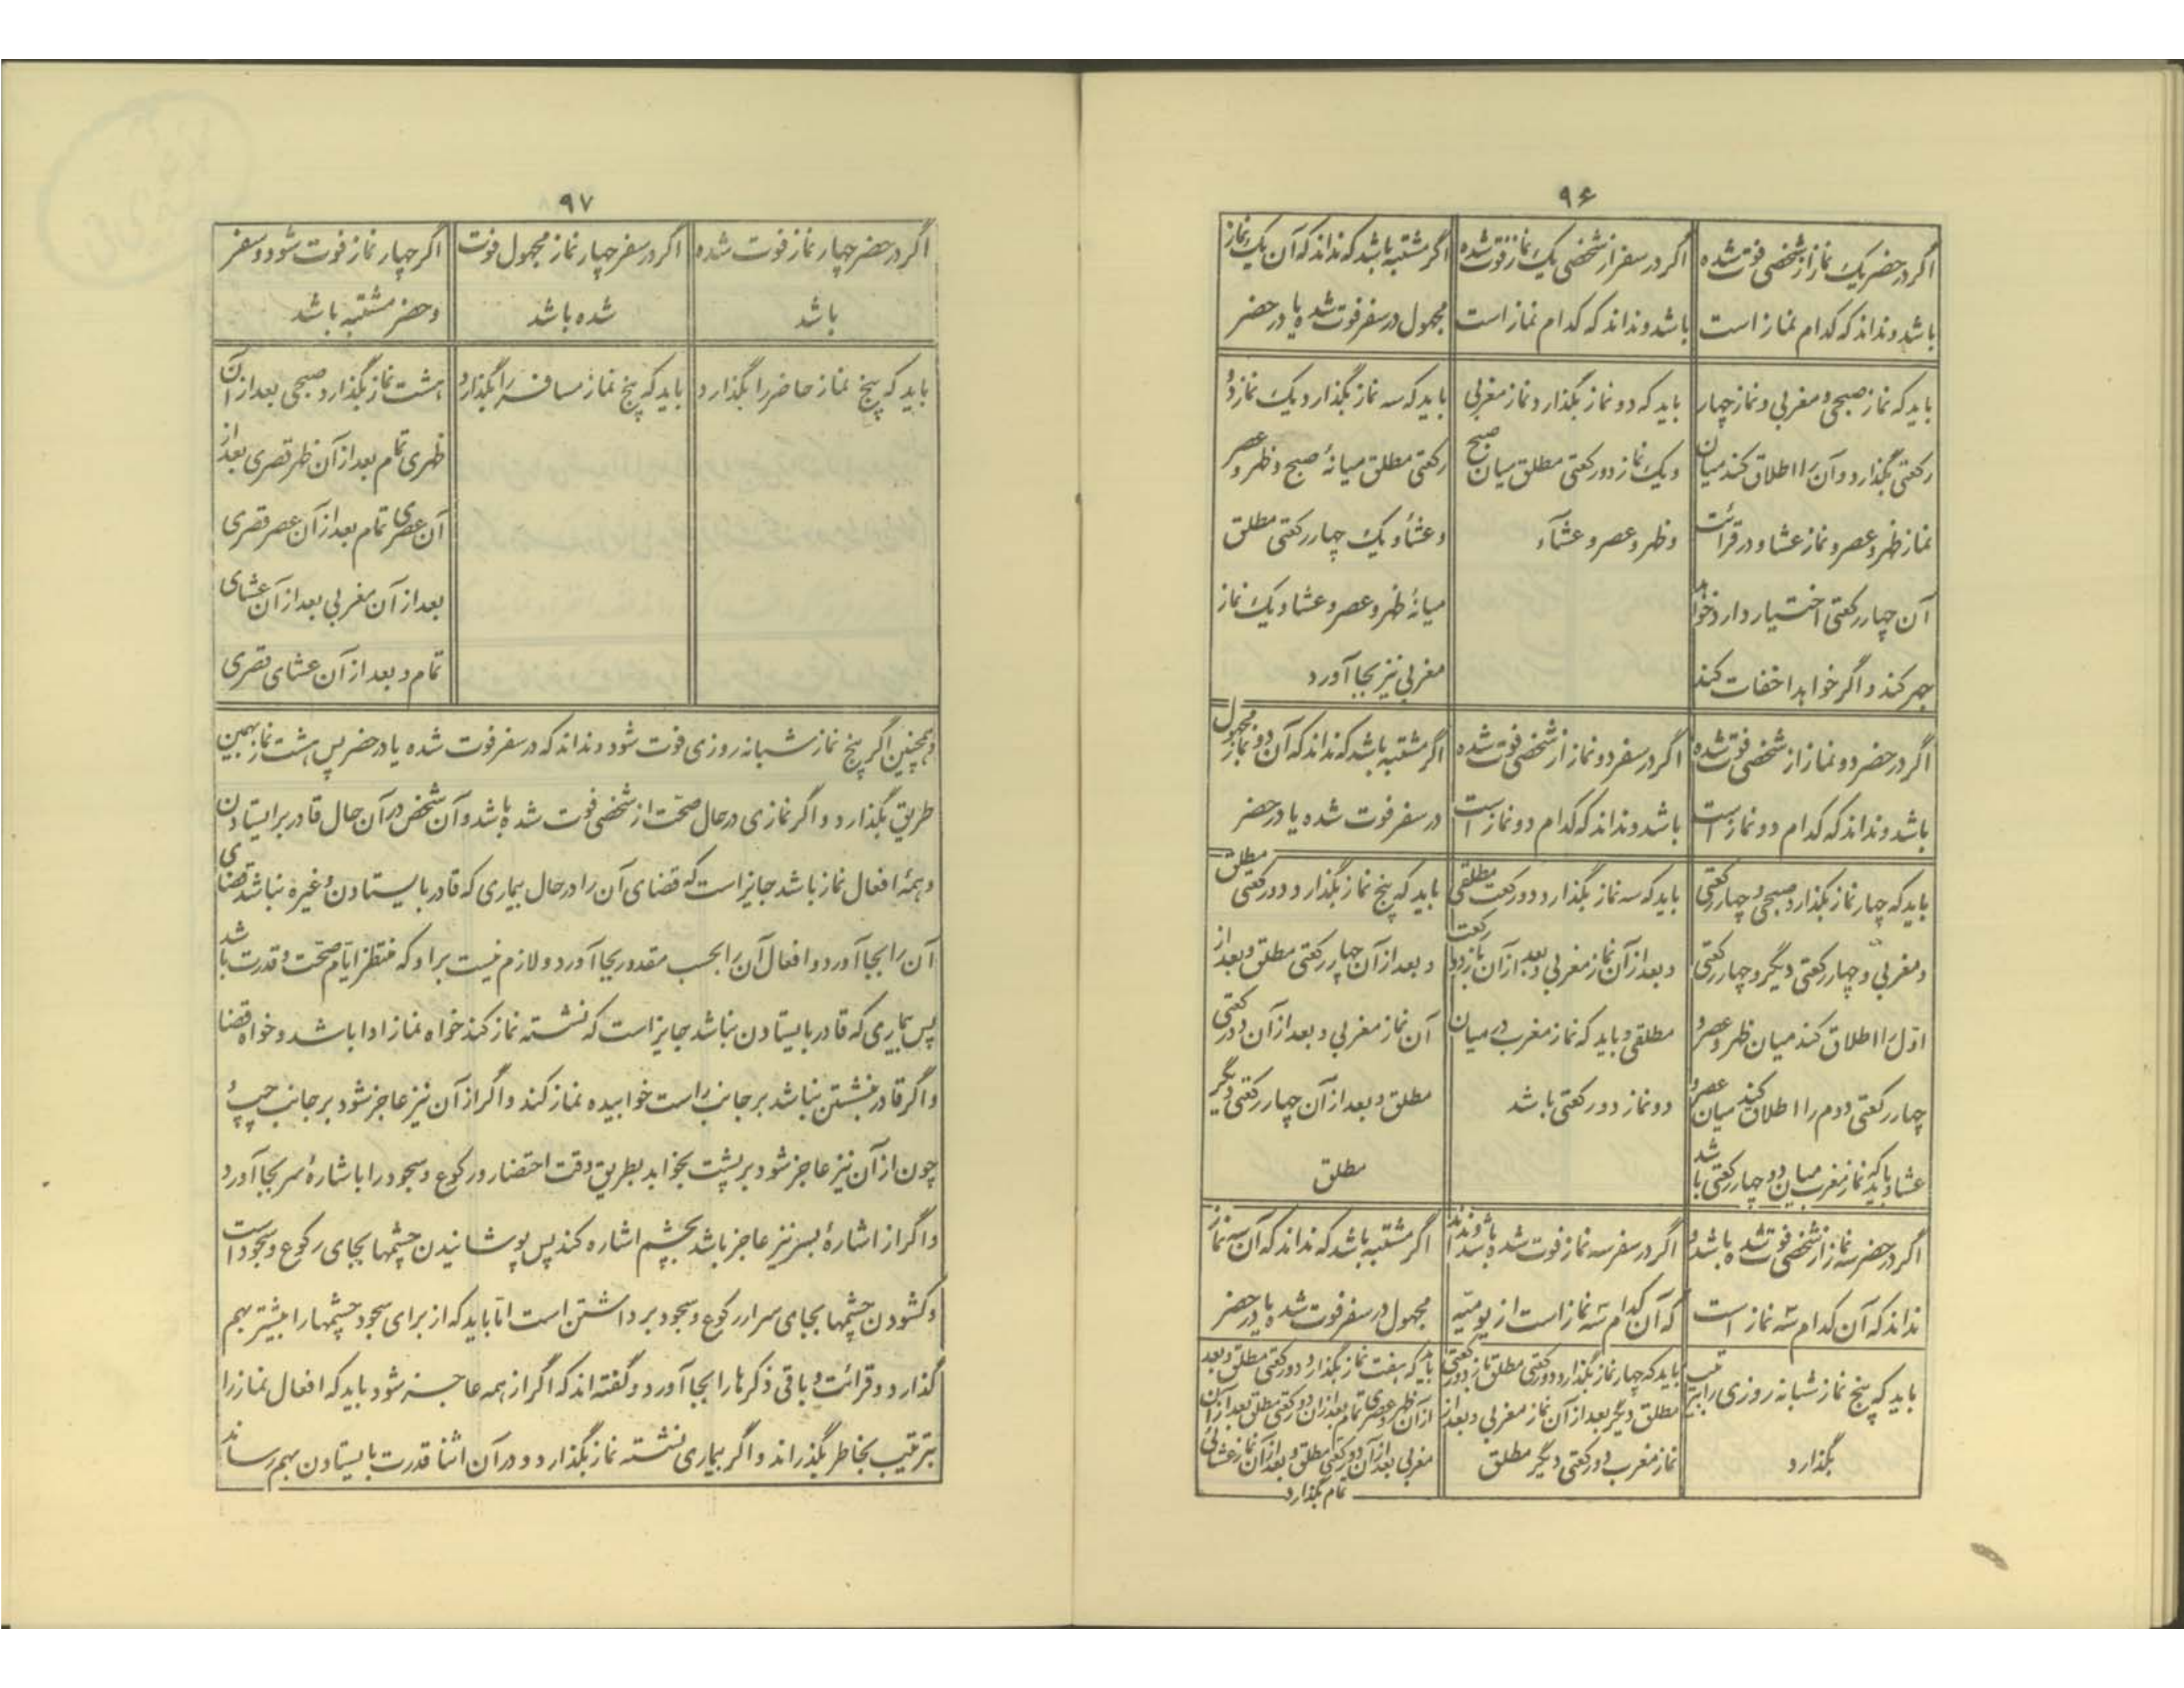 ۹۶
اگر در حضر یک نماز از شخصی فوت شده
باشد و نداند که کدام نماز است
اگر در سفر از شخصی یک نماز فوت شده
باشد و نداند که کدام نماز است
اگر مشتبه باشد که نداند که آن یک نماز
مجهول در سفر فوت شده یا در حضر
باید که نماز صبحی و مغربی و نماز چهار
رکعتی بگذارد و آن را اطلاق کند میان
نماز ظهر و عصر و نماز عشا و در قرائت
آن چهار رکعتی اختیار دارد خواهد
جهر کند و اگر خواهد اخفات کند
باید که دو نماز بگذارد نماز مغربی
و یک نماز دو رکعتی مطلق میان صبح
و ظهر و عصر و عشآء
باید که سه نماز بگذارد و یک نماز دو
رکعتی مطلق میانهٔ صبح و ظهر و عصر
و عشا و یک چهار رکعتی مطلق
میانهٔ ظهر و عصر و عشا و یک نماز
مغربی نیز بجا آورد
اگر در حضر دو نماز از شخصی فوت شده
باشد و نداند که کدام دو نماز است
اگر در سفر دو نماز از شخصی فوت شده
باشد و نداند که کدام دو نماز است
اگر مشتبه باشد که نداند که آن دو نماز مجهول
در سفر فوت شده یا در حضر
باید که چهار نماز بگذارد صبحی و چهار رکعتی
و مغربی و چهار رکعتی دیگر و چهار رکعتی
اوّل را اطلاق کند میان ظهر و عصر و
چهار رکعتی دوم را اطلاق کند میان عصر و
عشا و باید که نماز مغرب میان دو چهار رکعتی باشد
باید که سه نماز بگذارد دو رکعت مطلقی
و بعد از آن نماز مغربی و بعد از آن باز دو رکعت
مطلقی و باید که نماز مغرب در میان
دو نماز دو رکعتی باشد
باید که پنج نماز بگذارد دو رکعتی مطلق
و بعد از آن چهار رکعتی مطلق و بعد از
آن نماز مغربی و بعد از آن دو رکعتی
مطلق و بعد از آن چهار رکعتی دیگر
مطلق
اگر در حضر سه نماز از شخصی فوت شده باشد و
نداند که آن کدام سه نماز است
اگر در سفر سه نماز فوت شده باشد و نداند
که آن کدام سه نماز است از یومیّه
اگر مشتبه باشد که نداند که آن سه نماز
مجهول در سفر فوت شده یا در حضر
باید که پنج نماز شبانه روزی را بترتیب
بگذارد
باید که چهار نماز بگذارد دو رکعتی مطلق باز دو رکعتی
مطلق دیگر بعد از آن نماز مغربی و بعد از
نماز مغرب دو رکعتی دیگر مطلق
باید که هفت نماز بگذارد دو رکعتی مطلق و بعد
از آن ظهر و عصری تمام بعد از آن دو رکعتی مطلق بعد از آن
مغربی بعد از آن دو رکعتی مطلق و بعد از آن نماز عشائی
تمام بگذارد
۹۷
اگر در حضر چهار نماز فوت شده
باشد
اگر در سفر چهار نماز مجهول فوت
شده باشد
اگر چهار نماز فوت شود و سفر
و حضر مشتبه باشد
باید که پنج نماز حاضر را بگذارد
باید که پنج نماز مسافر را بگذارد
هشت نماز بگذارد صبحی بعد از آن
ظهری تمام بعد از آن ظهر قصری بعد از
آن عصری تمام بعد از آن عصر قصری
بعد از آن مغربی بعد از آن عشای
تمام و بعد از آن عشای قصری
و همچنین اگر پنج نماز شبانه روزی فوت شود و نداند که در سفر فوت شده یا در حضر پس هشت نماز بهمین
طریق بگذارد و اگر نمازی در حال صحّت از شخصی فوت شده باشد و آن شخص در آن حال قادر بر ایستادن
و همهٔ افعال نماز باشد جایز است که قضای آن را در حال بیماری که قادر بایستادن و غیره نباشد قضای
آن را بجا آورد و افعال آن را بحسب مقدور بجا آورد و لازم نیست بر او که منتظر ایّام صحّت و قدرت باشد
پس بیماری که قادر بایستادن نباشد جایز است که نشسته نماز کند خواه نماز ادا باشد و خواه قضا
و اگر قادر بنشستن نباشد بر جانب راست خوابیده نماز کند و اگر از آن نیز عاجز شود بر جانب چپ و
چون از آن نیز عاجز شود بر پشت بخوابد بطریق وقت احتضار و رکوع و سجود را باشارهٔ سر بجا آورد
و اگر از اشارهٔ بسر نیز عاجز باشد بچشم اشاره کند پس پوشانیدن چشمها بجای رکوع و سجود است
و کشودن چشمها بجای سر از رکوع و سجود برداشتن است امّا باید که از برای سجود چشمها را بیشتر بهم
گذارد و قرائت و باقی ذکرها را بجا آورد و گفته‌اند که اگر از همه عاجز شود باید که افعال نماز را
بترتیب بخاطر بگذراند و اگر بیماری نشسته نماز بگذارد و در آن اثنا قدرت بایستادن بهم رساند